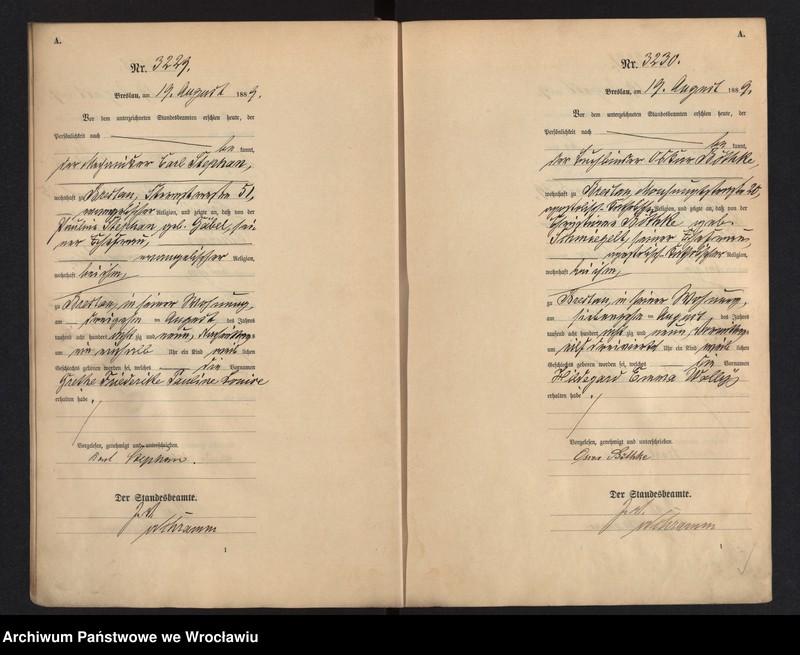 A.
Nr. 3229.
Breslau, am 19. August 1889.
Vor dem unterzeichneten Standesbeamten erschien heute, der
Persönlichkeit nach
be kannt,
der Mechaniker Carl Stephan,
wohnhaft zu Breslau, Sternstraße 51,
evangelischer Religion, und zeigte an, daß von der
Pauline Stephan geb. Gabel, sei
ner Ehefrau,
evangelischer Religion,
wohnhaft bei ihm,
zu Breslau, in seiner Wohnung,
am dreizehn ten August des Jahres
tausend acht hundert acht zig und neun, Nachmittags
um ein einhalb Uhr ein Kind weib lichen
Geschlechts geboren worden sei, welches die Vornamen
Grethe Friederike Pauline Louise
erhalten habe.
Vorgelesen, genehmigt und unterschrieben.
Karl Stephan.
Der Standesbeamte.
J. V.
Schramm
1
A.
Nr. 3230.
Breslau, am 19. August 1889.
Vor dem unterzeichneten Standesbeamten erschien heute, der
Persönlichkeit nach
be kannt,
der Buchbinder Oskar Böthke,
wohnhaft zu Breslau, 20,
apostolisch-katholischer Religion, und zeigte an, daß von der
Christiane Böthke geb.
seiner Ehefrau,
apostolisch-katholischer Religion,
wohnhaft bei ihm,
zu Breslau, in seiner Wohnung,
am siebzehn ten August des Jahres
tausend acht hundert acht zig und neun, Vormittags
um elf dreiviertel Uhr ein Kind weib lichen
Geschlechts geboren worden sei, welches die Vornamen
Hildegard Emma Wally
erhalten habe.
Vorgelesen, genehmigt und unterschrieben.
Oscar Böthke
Der Standesbeamte.
J. V.
Schramm
1
Archiwum Państwowe we Wrocławiu